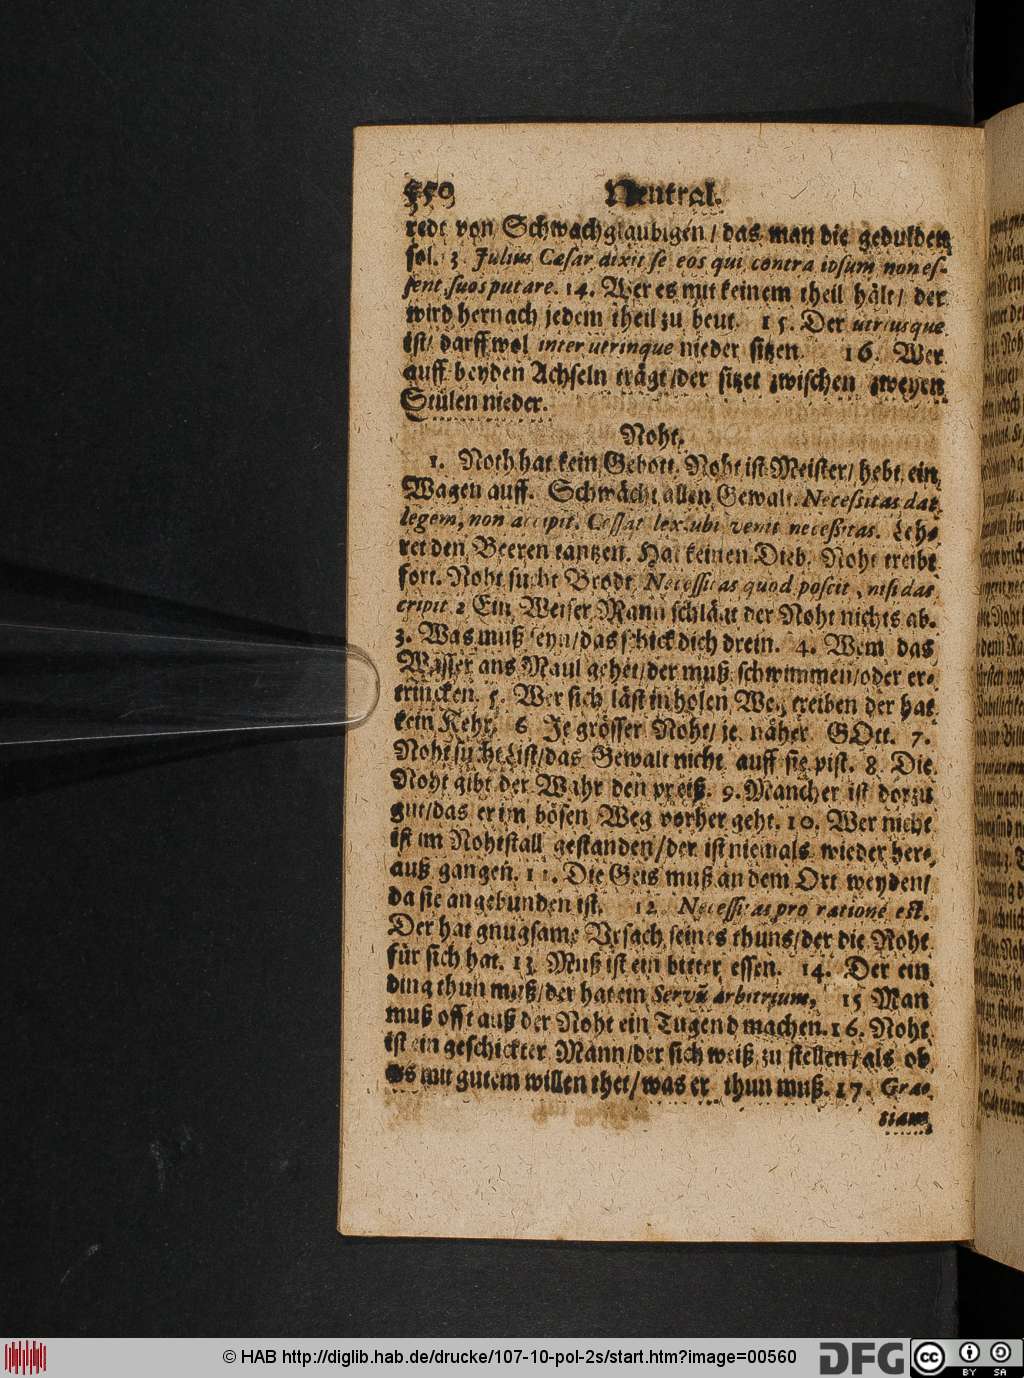 550 Neutral.
redt von Schwachglaubigen / das man die gedulden
sol. 3. Julius Cæsar dixit se eos qui contra ipsum non es-
sent, suos putare. 14. Wer es mit keinem theil hält / der
wird hernach jedem theil zu beut. 15. Der utriusque
ist / darff wol inter utrinque nieder sitzen. 16. Wer
auff beyden Achseln trägt / der sitzet zwischen zweyen
Stülen nieder.
Noht.
1. Noth hat kein Gebott. Noht ist Meister / hebt ein
Wagen auff. Schwächt allen Gewalt. Necessitas dat
legem, non accipit. Cessat lex ubi venit necessitas. Leh-
ret den Beeren tantzen. Hat keinen Dieb. Noht treibt
fort. Noht sucht Brodt. Necessitas quod poscit, nisi das
eripit. 2 Ein Weiser Mann schlägt der Noht nichts ab.
3. Was muß seyn / das schick dich drein. 4. Wem das
Wasser ans Maul gehet / der muß schwimmen / oder er-
trincken. 5. Wer sich läst in holen Weg treiben der hat
kein Kehr. 6. Je grösser Noht / je näher GOtt. 7.
Noht sucht List / das Gewalt nicht auff sie pist. 8. Die
Noht gibt der Wahr den preiß. 9. Mancher ist dorzu
gut / das er im bösen Weg vorher geht. 10. Wer nicht
ist im Nohtstall gestanden / der ist niemals wieder her-
auß gangen. 11. Die Geis muß an dem Ort weyden /
da sie angebunden ist. 12. Necessitas pro ratione est.
Der hat gnugsame Vrsach seines thuns / der die Noht
für sich hat. 13. Muß ist ein bitter essen. 14. Der ein
ding thun muß / der hat ein Servũ arbitrium, 15 Man
muß offt auß der Noht ein Tugend machen. 16. Noht
ist ein geschickter Mann / der sich weiß zu stellen / als ob
es mit gutem willen thet / was er thun muß. 17. Gra-
tiam
© HAB http://diglib.hab.de/drucke/107-10-pol-2s/start.htm?image=00560
DFG cc BY SA